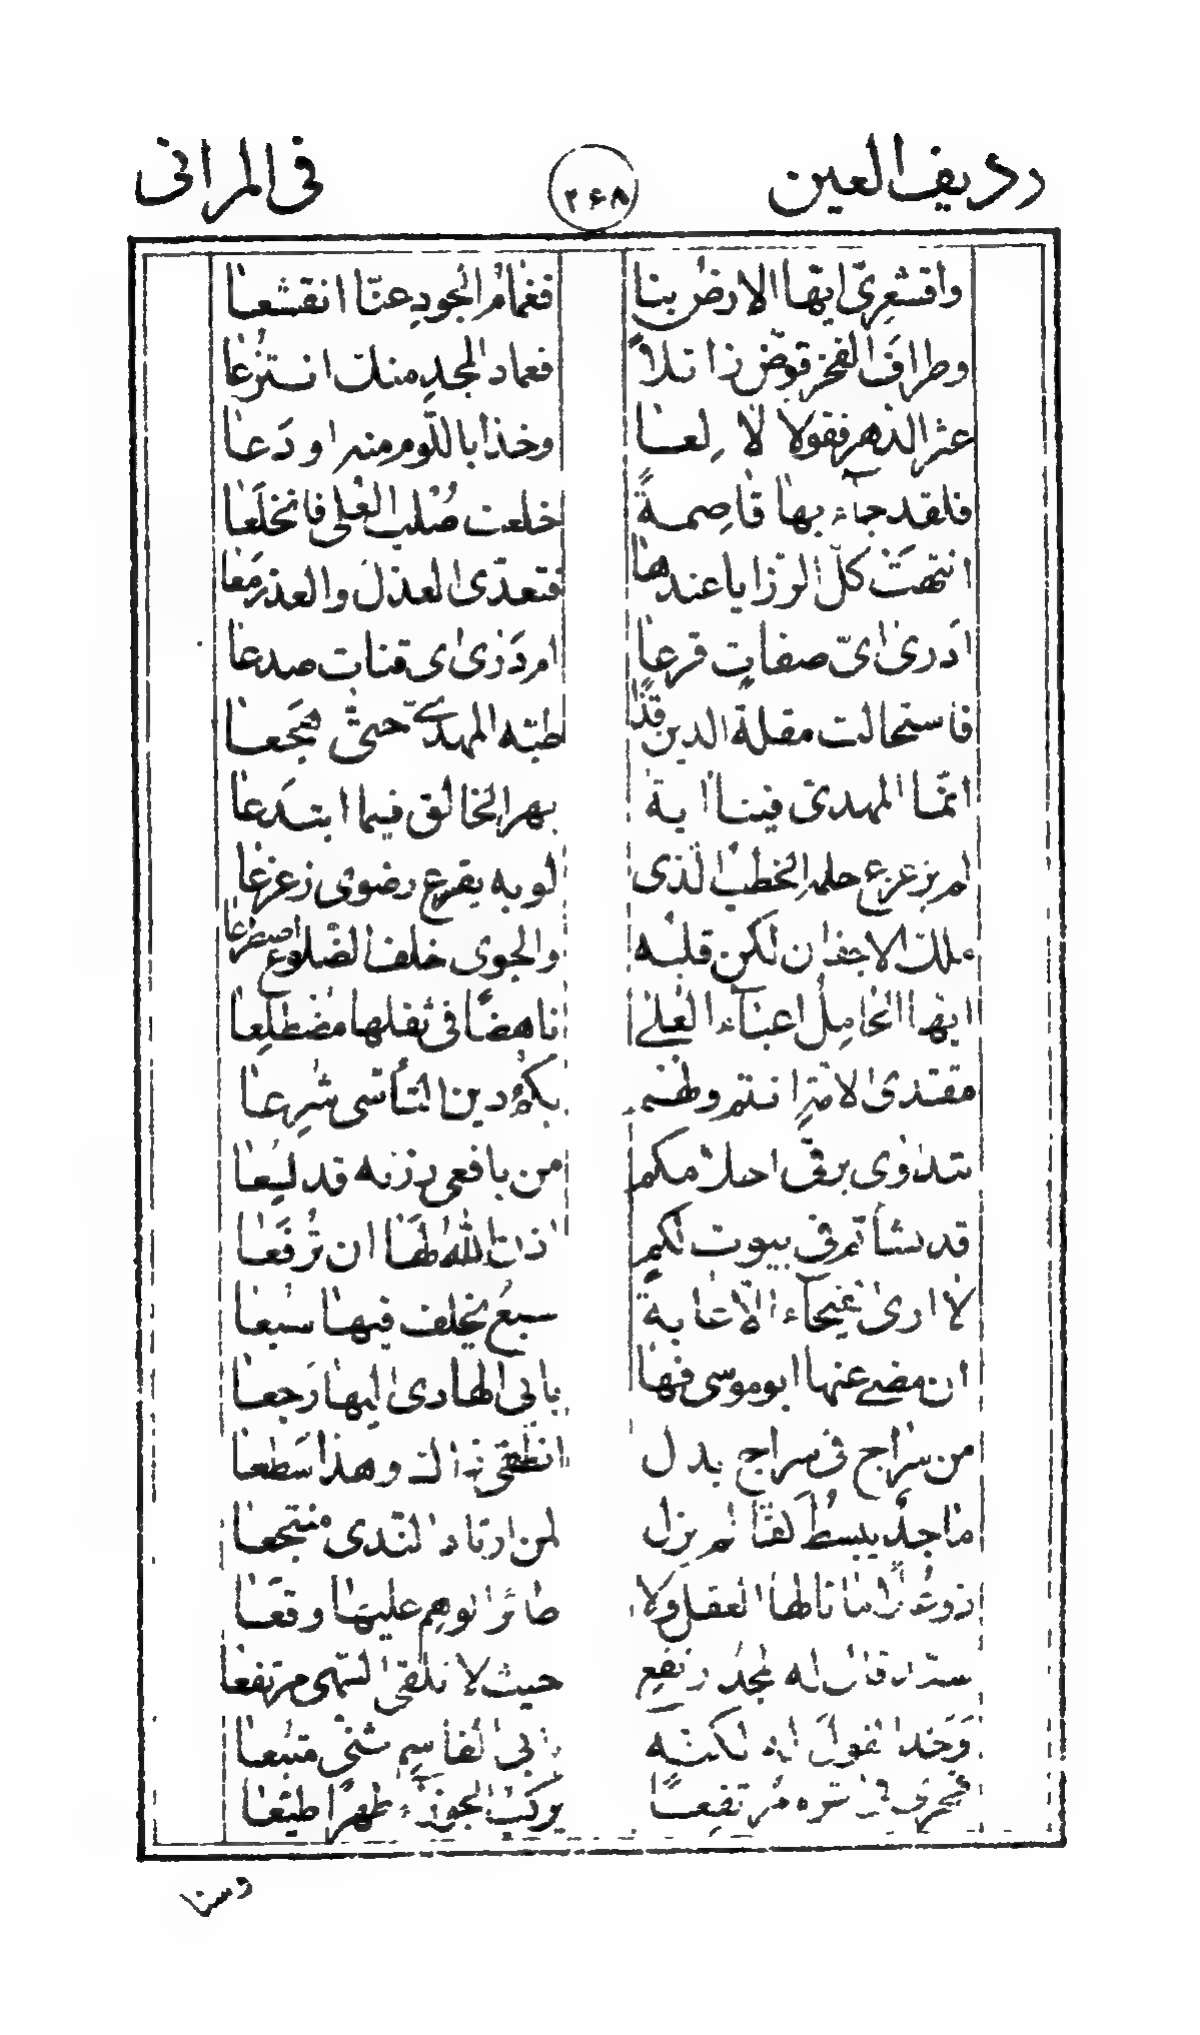 رديف العين ٢٦٨ في المراثي
واقشعرّي ايّها الارض بنا فغمام الجود عنّا انقشعا
وطراف الفخر قوّض زائلاً فعماد المجد منك انتزعا
عثر الدهر فقولا لا لعا وخذا باللّوم منه او دعا
فلقد جاء بها قاصمةً خلعت صُلب العُلى فانخلعا
انتهت كلّ الرزايا عندها فتعدّى العذل والعذر معا
ادرى اىّ صفاتٍ قرعا ام درى اى قنات صدعا
فاستحالت مقلة الدين قذًا طبّه المهدي حتى هجعا
انّما المهدى فينا اية بهر الخالق فيما ابتدعا
لم يزعزع حلمه الخطب الّذى لو به يقرع رضوى زعزعا
ملك الاجفان لكن قلبه والجوى خلف الضلوع اصطرعا
ايها الحامل اعباء العلى ناهضًا في ثقلها مضطلعا
مقتدى الامّة انتم ولهم بكم دين التأسّي شرعا
نتداوى برقى احلامكم من بافعى رزئه قد لسعا
قد نشأتم في بيوت لكم اذن الله لها ان تُرفعا
لا ارى غيحاء الا غابة سبع يخلف فيها سبعا
ان مضى عنها ابو موسى فها بابي الهادى اليها رجعا
من سراج في سراج بدل انطفى ذاك وهذا سطعا
ماجدٌ يبسط كفّا لم يزل لمن ارتاد الندى منتجعا
ذو علًا ما نالها العقل ولا طائر الوهم عليها وقعا
له المجد ارتفع حيث لا تلقى السهى مرتفعا
وغدا يقول له لكنّه بابي القاسم شتّى متبعا
مرتفعًا يركب الجوزاء ظهرًا طيّعا
وسنا